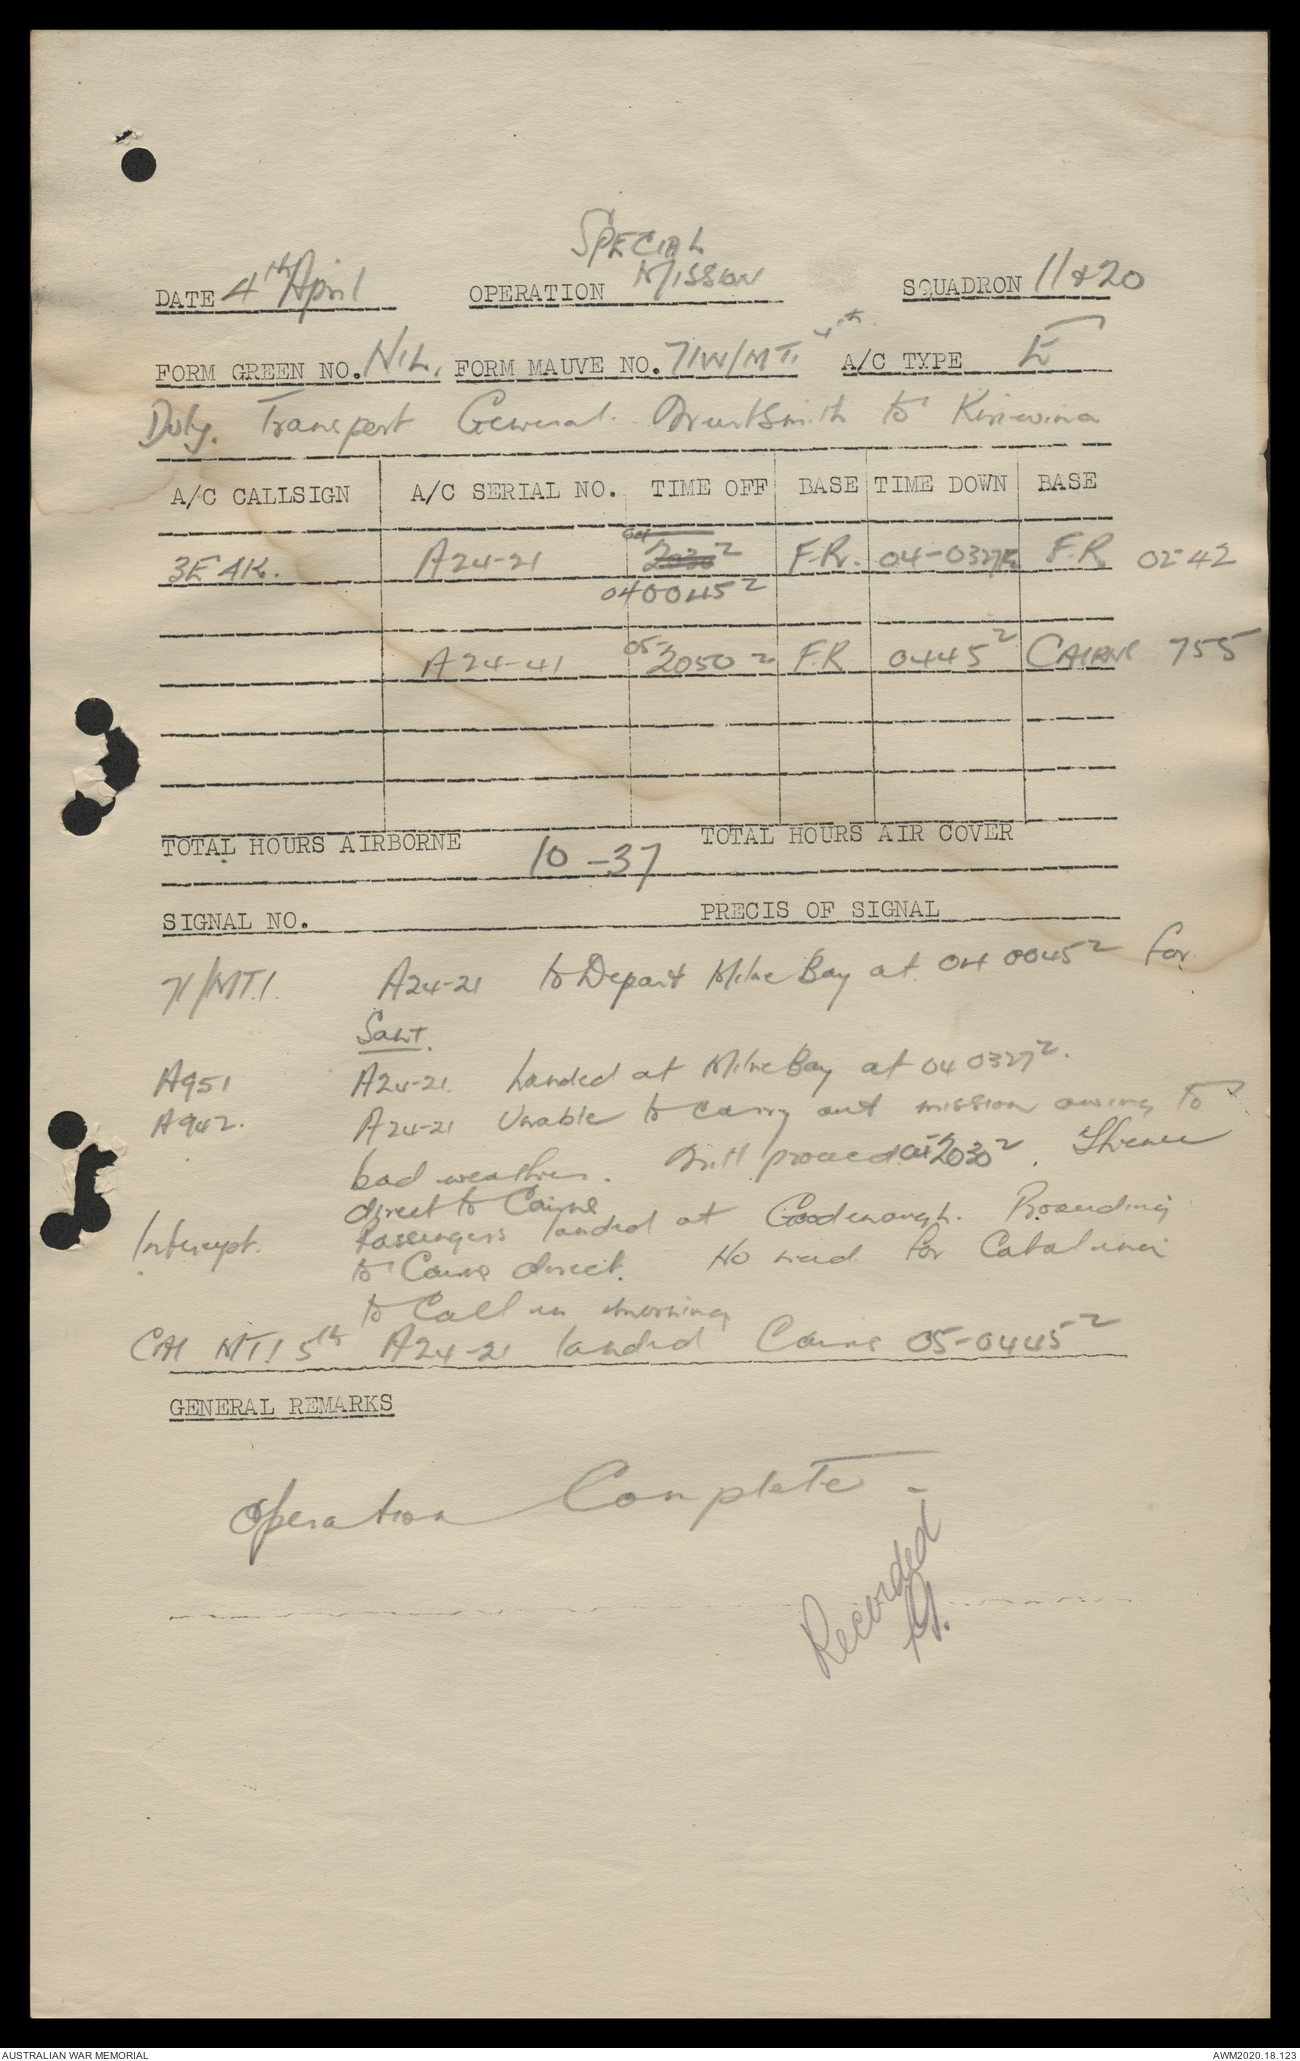 SPECIAL
DATE 4th April OPERATION MISSION SQUADRON 11 & 20
FORM GREEN NO. NIL. FORM MAUVE NO. 71W/MT1 4th A/C TYPE E
Duty. Transport General to Kiriwina
A/C CALLSIGN A/C SERIAL NO. TIME OFF BASE TIME DOWN BASE
3E4K. A24-21 04 2030Z F.R. 04-0327Z F.R 02-42
040045Z
A24-41 05-2050Z F.R 0445Z CAIRNS 755
TOTAL HOURS AIRBORNE 10-37 TOTAL HOURS AIR COVER
SIGNAL NO. PRECIS OF SIGNAL
71/MT1. A24-21 to Depart Milne Bay at 04 0045Z for
A951 A24-21. Landed at Milne Bay at 04 0327Z.
A942. A24-21 Unable to carry out mission owing to
bad weather. Will proceed at 2030Z. Thence
direct to Cairns
Intercept. Passengers landed at Goodenough. Proceeding
to Cairns direct. No need for Catalina
to Call in morning
CA1 MT1 5th A24-21 landed Cairns 05-0445Z
GENERAL REMARKS
Operation Complete -
Recorded
AUSTRALIAN WAR MEMORIAL AWM2020.18.123